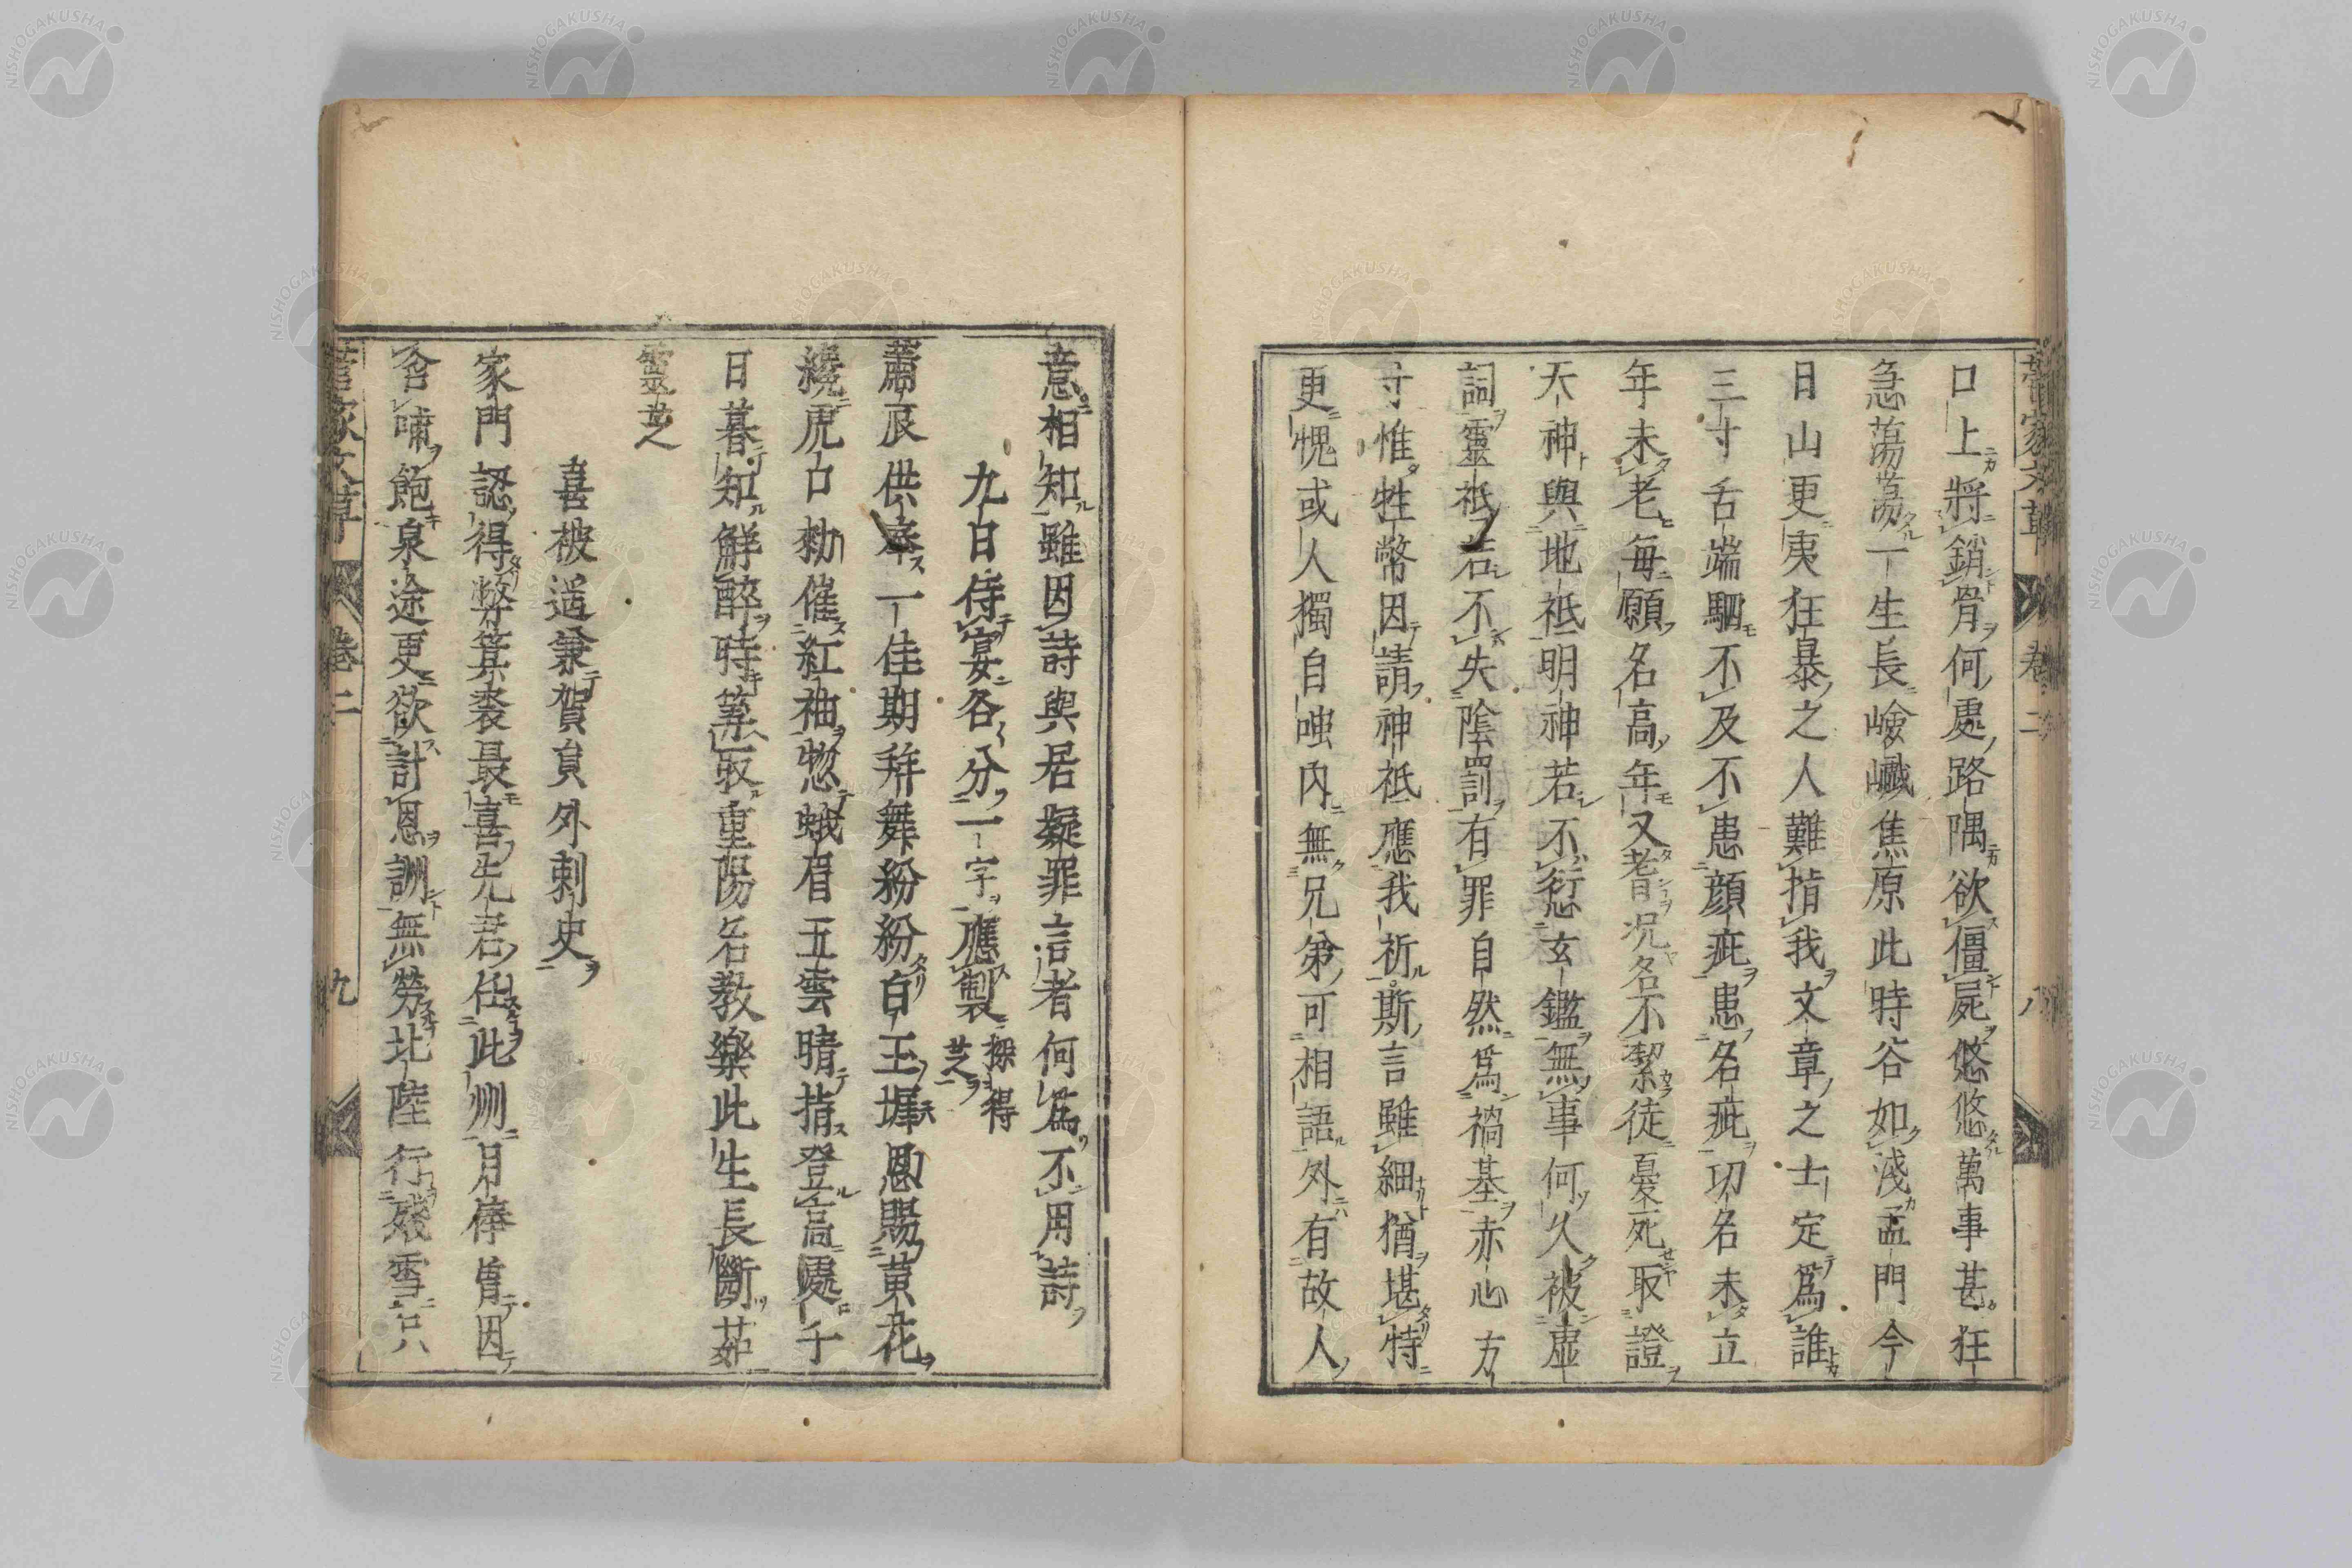 菅家文草 卷二 八
口上將銷骨何處路隅欲僵屍悠悠萬事甚狂
急蕩蕩一生長嶮巇焦原此時谷如淺孟門今
日山更夷狂暴之人難指我文章之士定爲誰
三寸舌端駟不及不患顏疵患名疵功名未立
年未老每願名高年又耆況名不潔徒憂死取證
天神與地祇明神若不愆玄鑑無事何久被虛
詞靈祇若不失陰罰有罪自然爲禍基赤心方
寸惟牲幣因請神祇應我祈斯言雖細猶堪恃
更愧或人獨自嗤內無兄弟可相語外有故人
意相知雖因詩與居疑罪言者何爲不用詩
九日侍宴各分一字應製 探得芝
蕭辰供奉一佳期拜舞紛紛白玉墀恩賜黃花
繞虎口勑催紅袖惣蛾眉五雲晴指登高處千
日暮知鮮醉時筭取重陽名教樂此生長斷茹
靈芝
喜被遙兼賀員外刺史
家門認得弊箕裘最喜先君任此州月俸曾因
含嘯飽泉途更欲計恩訓無勞北陸行殘雪只
菅家文草 卷二 九
NISHOGAKUSHA